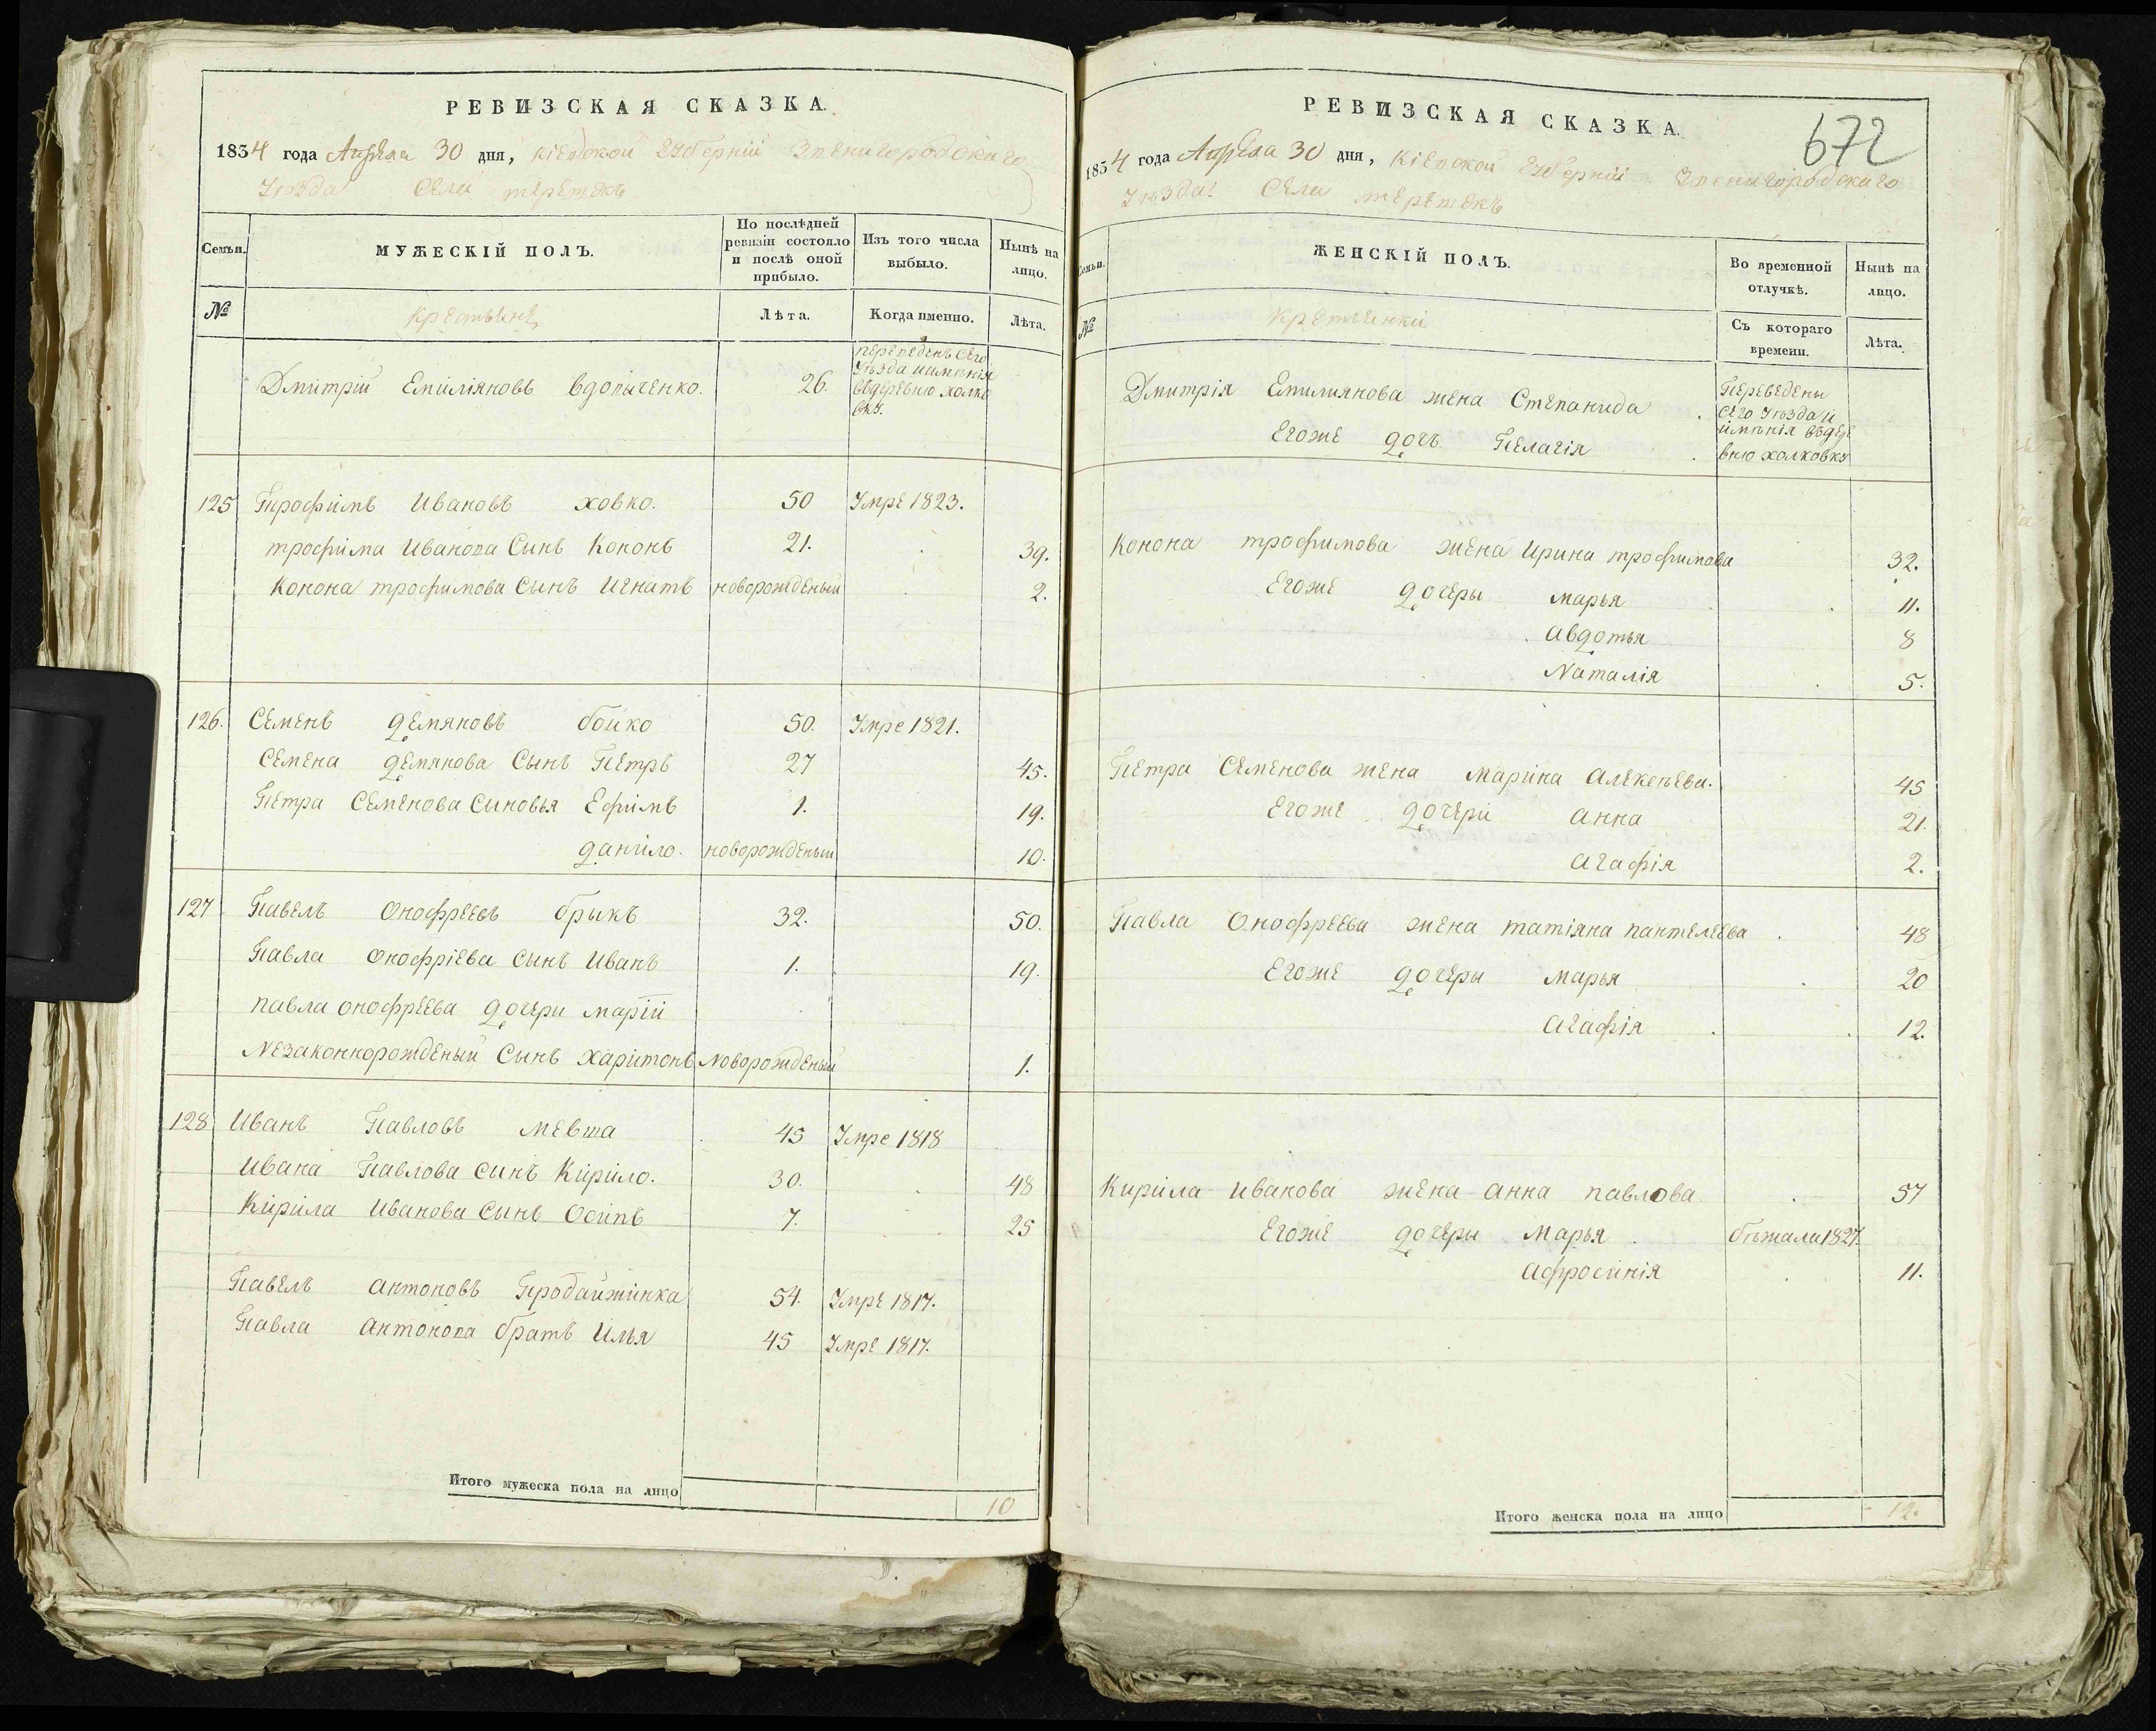 РЕВИЗСКАЯ СКАЗКА.
1834 года Апреля 30 дня, Кіевской Губерніи Звенигородскаго
Уѣзда Села
Семьи.
МУЖЕСКІЙ ПОЛЪ.
По послѣдней ревизіи состояло и послѣ оной прибыло.
Изъ того числа выбыло.
Нынѣ на лицо.
№
Крестьяне
Лѣта.
Когда именно.
Лѣта.
Дмитрій Емиліяновъ Вдовыченко. 26. переведенъ сего
Уѣзда иимѣнія
вдеревню холко
вку.
125 Трофимъ Ивановъ ховко. 50 Умре 1823.
трофима Иванова Сынъ Кононъ 21. 39.
Конона трофимова Сынъ Игнатъ новорожденый 2.
126. Семенъ демяновъ бойко 50. Умре 1821.
Семена демянова Сынъ Петръ 27 45.
Петра Семенова Сыновья Ефимъ 1. 19.
данило. новорожденый 10.
127 Павелъ Онофреевъ брыкъ 32. 50.
Павла Онофріева Сынъ Иванъ 1. 19.
Павла онофреева дочери маріи
Незаконнорожденый Сынъ харитонъ новорожденый 1.
128 Иванъ Павловъ мевша 45 Умре 1818
Ивана Павлова сынъ Кирило. 30. 48
Кирила Иванова Сынъ Осипъ 7. 25
Павелъ Антоновъ 54. Умре 1817.
Павла Антонова братъ Илья 45 Умре 1817.
Итого мужеска пола на лицо 10
РЕВИЗСКАЯ СКАЗКА.
672
1834 года Апреля 30 дня, Кіевской Губерніи Звенигородскаго
Уѣзда Села
Семьи.
ЖЕНСКІЙ ПОЛЪ.
Во временной отлучкѣ.
Нынѣ на лицо.
№
Крестьянки
Съ котораго времени.
Лѣта.
Дмитрія Емилиянова жена Степанида Переведены
сего Уѣзда и
Егоже дочь Пелагія имѣнія вдере
вню холковку
Конона трофимова жена Ирина трофимова 32.
Егоже дочеры марья 11.
авдотья 8
Наталія 5.
Петра Семенова жена марина алексѣева. 45
Егоже дочери анна 21.
агафія 2.
Павла Онофреева жена татіяна пантелеева 48
Егоже дочеры марья 20
агафія 12.
Кирила иванова жена анна павлова 57
Егоже дочеры марья бѣжала 1827.
афросинія 11.
Итого женска пола на лицо 12.